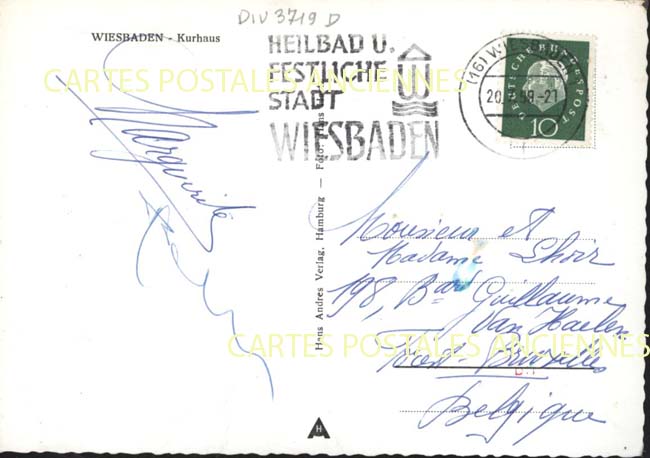 DIV 3719 D
WIESBADEN - Kurhaus
HEILBAD U.
FESTLICHE
STADT
WIESBADEN
(16) WIESBADEN
20. 58-21
DEUTSCHE BUNDESPOST
10
CARTES POSTALES ANCIENNES
Marguerite
Hans Andres Verlag, Hamburg — Foto: Hans
Monsieur et
Madame Lhoir
198, Bard Guillaume
Van Haelen
Forest-Bruxelles
Belgique
CARTES POSTALES ANCIENNES
H